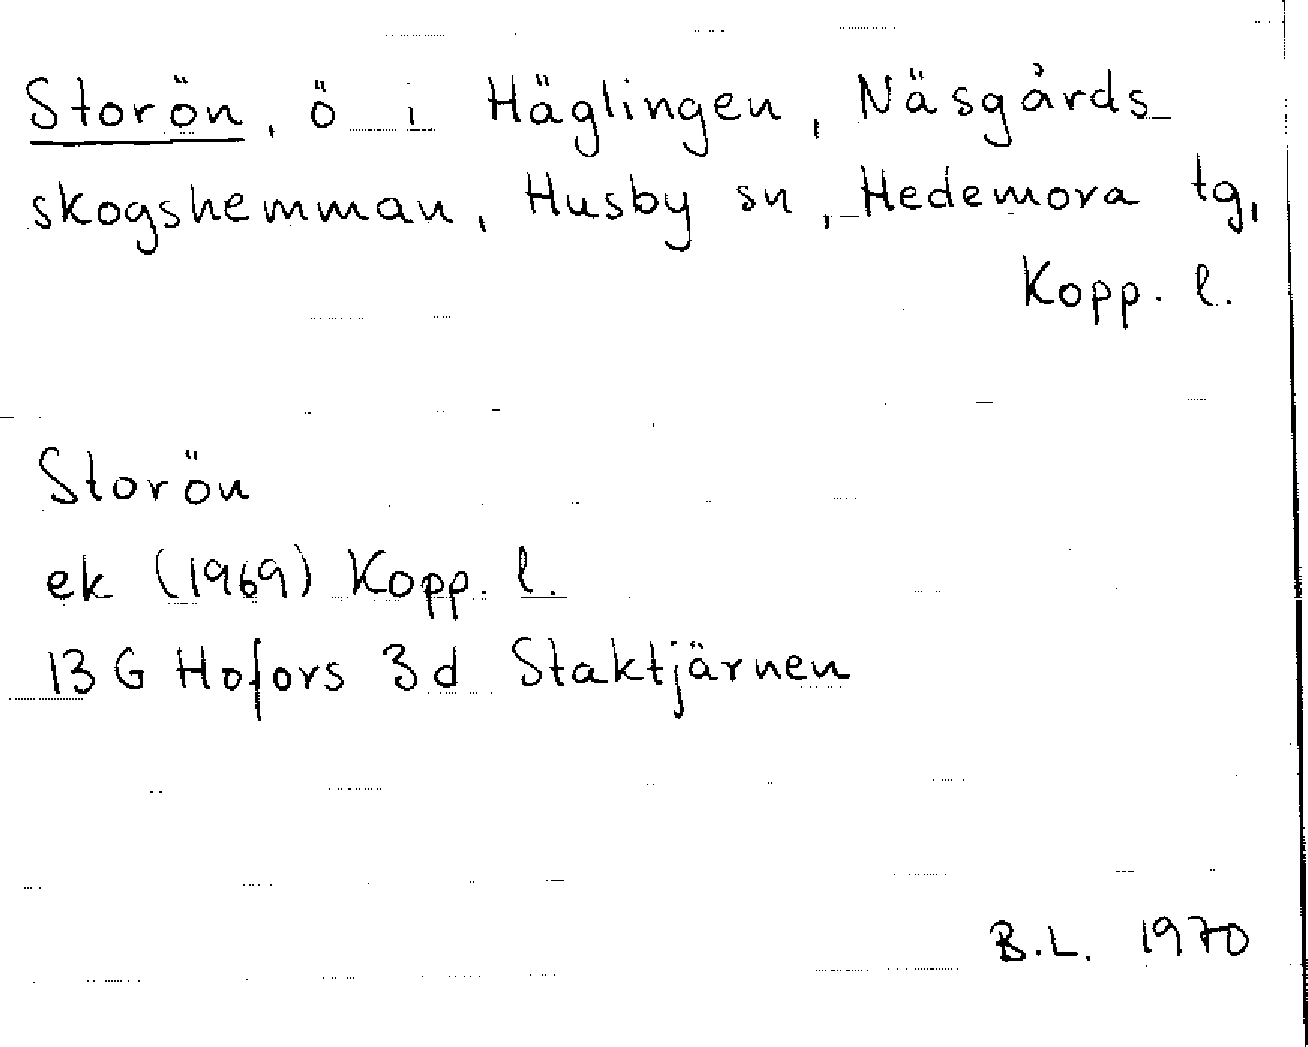 Storön, ö i Häglingen, Näsgårds_
skogshemman, Husby sn, Hedemora tg,
Kopp. l.
Storön
ek (1969) Kopp. l.
13 G Hofors 3 d Staktjärnen
B.L. 1970